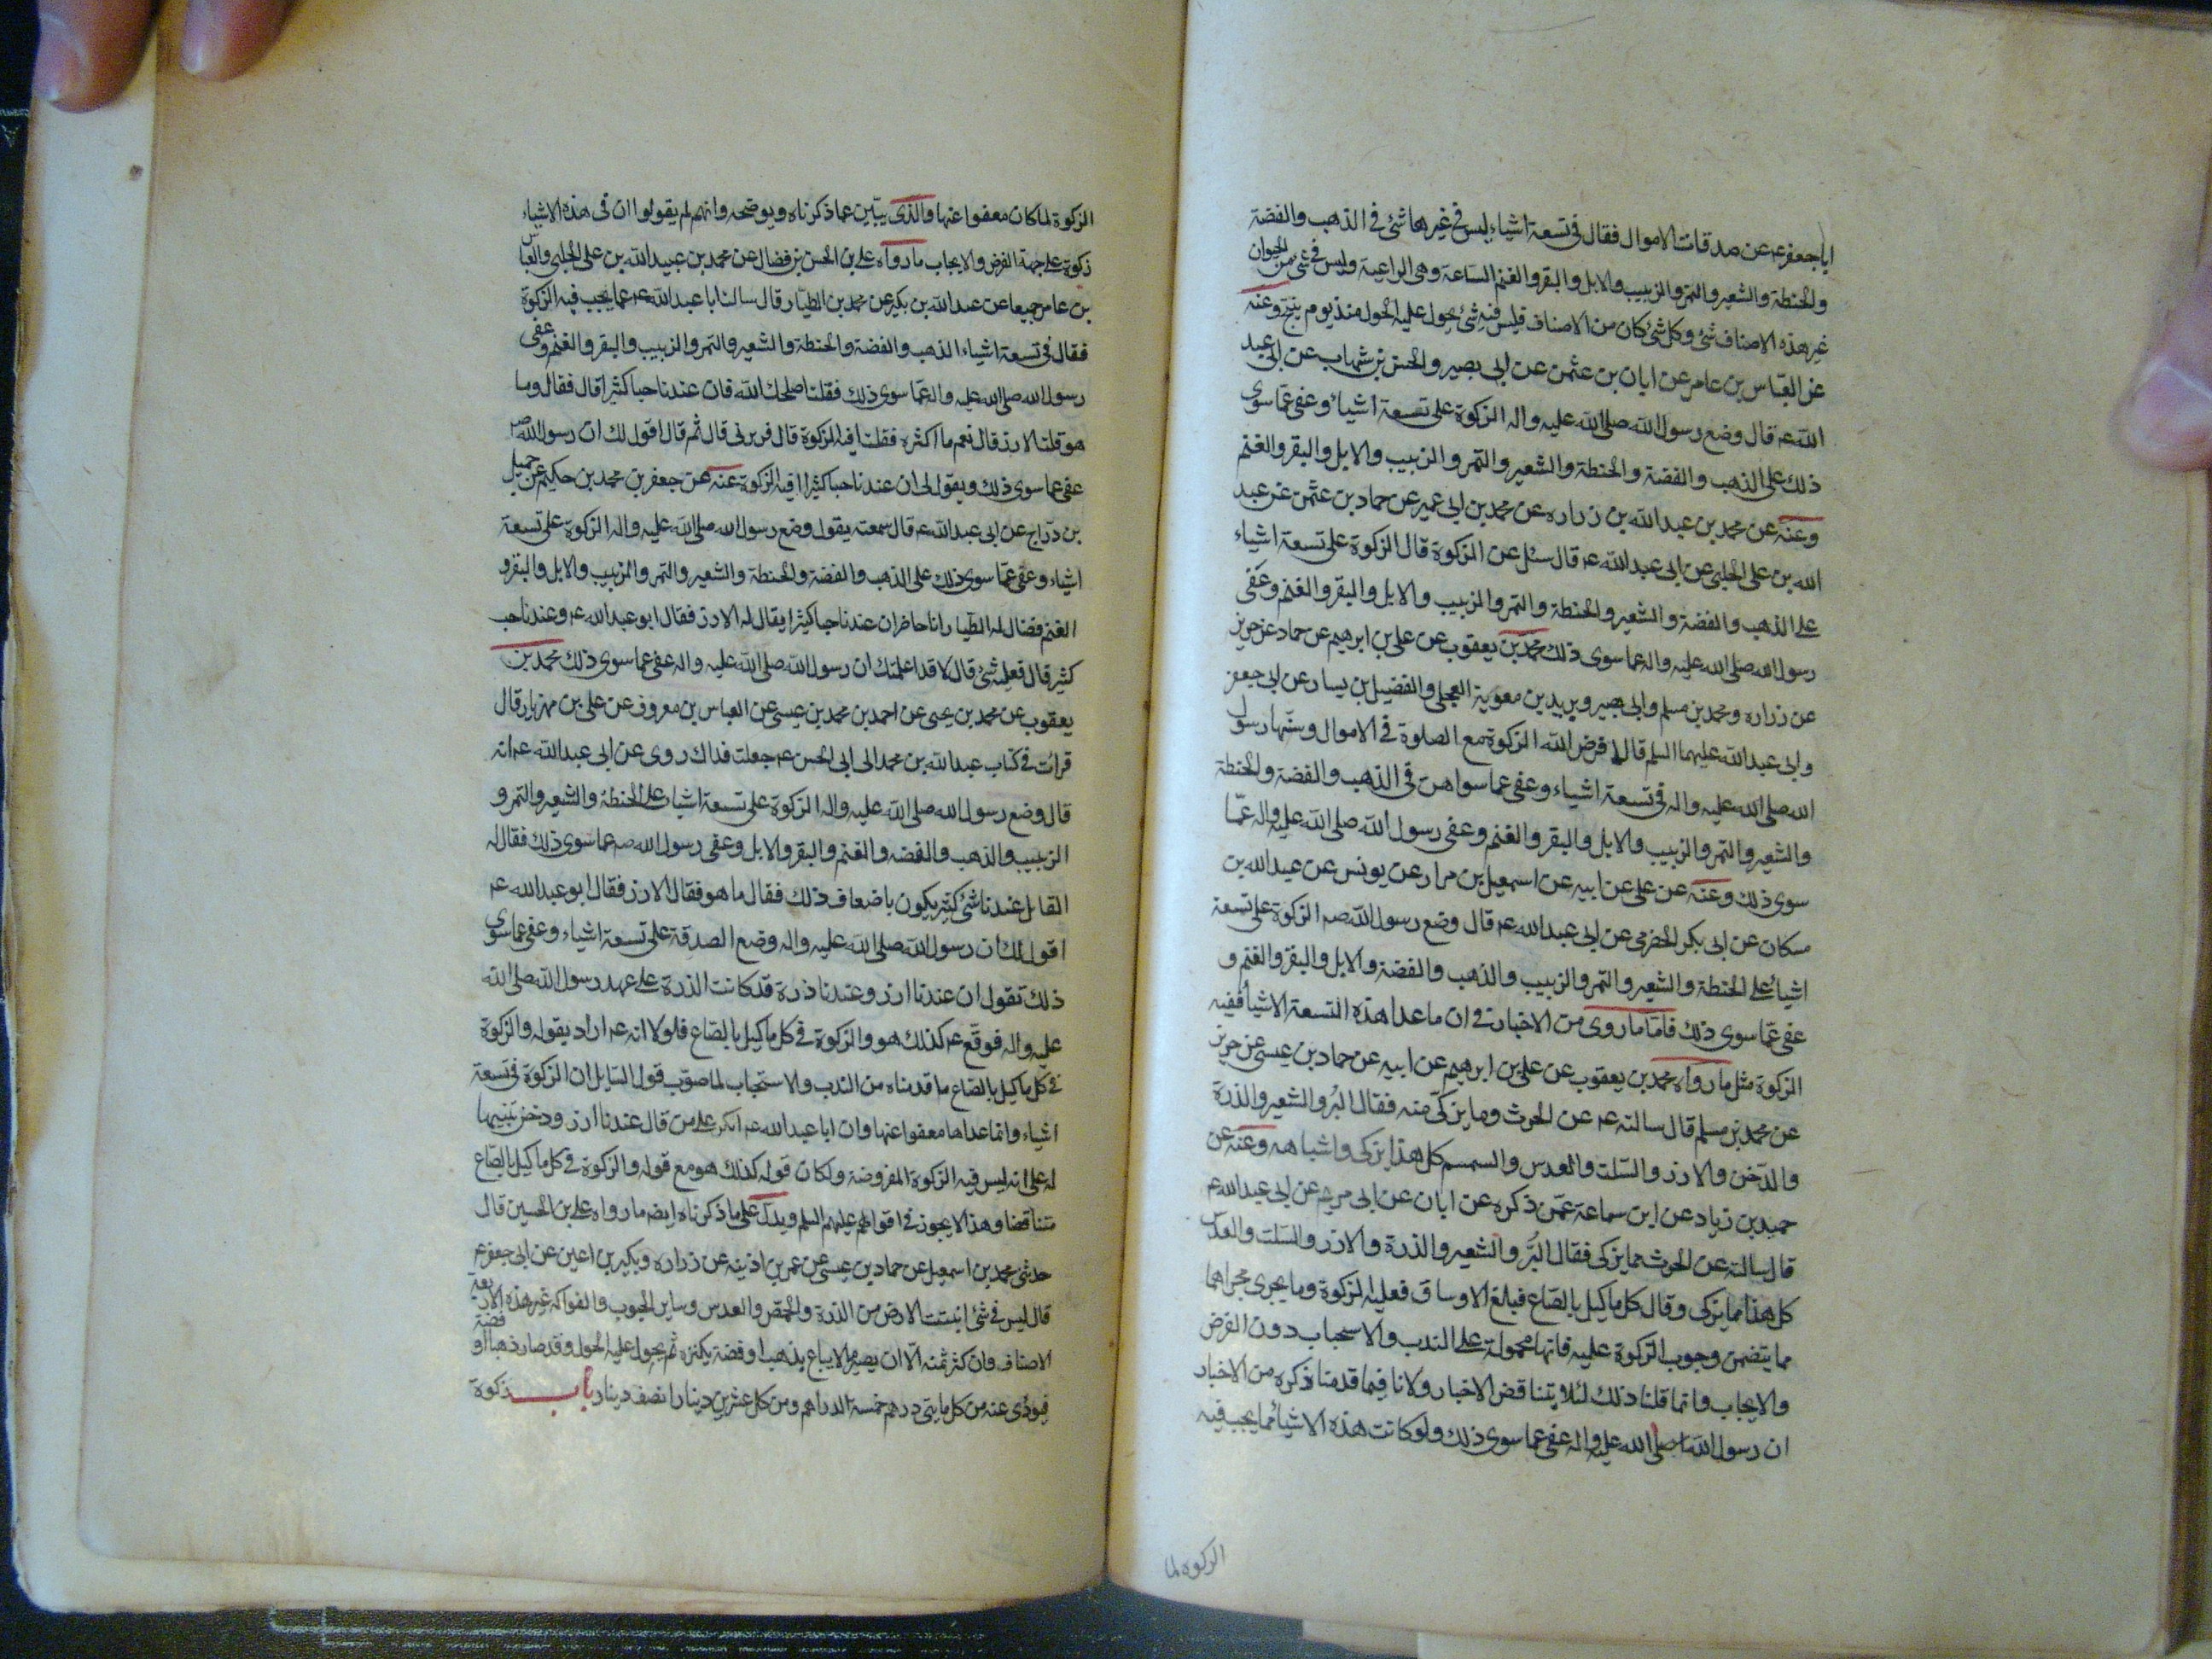 ابا جعفر عه عن صدقات الاموال فقال فى تسعة اشياء ليس فى غيرها شئ فى الذهب والفضة
والحنطة والشعير والتمر والزبيب والابل والبقر والغنم السائمة وهى الراعية وليس فى شئ من الحيوان
غير هذه الاصناف شئ وكل شئ كان من الاصناف فليس فيه شئ يحول عليه الحول منذ يوم ينتج وعنه
عن العباس بن عامر عن ابان بن عثمن عن ابى بصير والحسن بن شهاب عن ابى عبد
الله عه قال وضع رسول الله صلى الله عليه واله الزكوة على تسعة اشياء وعفى عما سوى
ذلك على الذهب والفضة والحنطة والشعير والتمر والزبيب والابل والبقر والغنم
وعنه عن محمد بن عبيد الله بن زراره عن محمد بن ابى عمير عن حماد بن عثمن عن عبيد
الله بن على الحلبى عن ابى عبد الله عه قال سئل عن الزكوة قال الزكوة على تسعة اشياء
على الذهب والفضة والشعير والحنطة والتمر والزبيب والابل والبقر والغنم وعفى
رسول الله صلى الله عليه واله عما سوى ذلك محمد بن يعقوب عن على بن ابرهيم عن حماد عن حريز
عن زراره ومحمد بن مسلم وابى بصير وبريد بن معوية العجلى والفضيل بن يسار عن ابى جعفر
وابى عبد الله عليهما السلم قالا فرض الله الزكوة مع الصلوة فى الاموال وسنها رسول
الله صلى الله عليه واله فى تسعة اشياء وعفى عما سواهن فى الذهب والفضة والحنطة
والشعير والتمر والزبيب والابل والبقر والغنم وعفى رسول الله صلى الله عليه واله عمّا
سوى ذلك وعنه عن على عن ابيه عن اسمعيل بن مرار عن يونس عن عبد الله بن
مسكان عن ابى بكر الحضرمى عن ابى عبد الله عه قال وضع رسول الله صه الزكوة على تسعة
اشياء على الحنطة والشعير والتمر والزبيب والذهب والفضة والابل والبقر والغنم و
عفى عمّا سوى ذلك فامّا ما روى من الاخبار فى ان ما عدا هذه التسعة الاشياء ففيه
الزكوة مثل ما رواه محمد بن يعقوب عن على بن ابرهيم عن ابيه عن حماد بن عيسى عن حريز
عن محمد بن مسلم قال سالته عه عن الحرث وما يزكّى منه فقال البُر والشعير والذرة
والدّخن والارز والسّلت والعدس والسمسم كل هذا يزكى واشباهه وعنه عن
حميد بن زياد عن ابن سماعة عمّن ذكره عن ابان عن ابى مريم عن ابى عبد الله عه
قال سالته عن الحرث مما يزكى فقال البُر والشعير والذرة والارز والسّلت والعدس
كل هذا مما يزكى وقال كل ما كيل بالصّاع فبلغ الاوساق فعليه الزكوة وما يجرى مجراهما
مما يتضمن وجوب الزكوة عليه فانها محمولة على الندب والاستحباب دون الفرض
والايجاب وانما قلنا ذلك لئلا يتناقض الاخبار ولانا فيما قدمنا ذكره من الاخبار
ان رسول الله صلى الله عليه واله عفى عما سوى ذلك ولو كانت هذه الاشياء مما يجب فيه
الزكوه لما
الزكوة لما كان معفوا عنها والذى يبيّن عما ذكرناه ويوضحه وانهم لم يقولوا ان فى هذه الاشياء
زكوة على جهة الفرض والايجاب ما رواه على بن الحسن بن فضال عن محمد بن عبيد الله بن على الحلبى والعباس
بن عامر جميعا عن عبد الله بن بكير عن محمد بن الطيّار قال سالت ابا عبد الله عه عما يجب فيه الزكوة
فقال فى تسعة اشياء الذهب والفضة والحنطة والشعير والتمر والزبيب والبقر والغنم وعفى
رسول الله صلى الله عليه واله عمّا سوى ذلك فقلت اصلحك الله فان عندنا حبا كثيرا قال فقال وما
هو قلت الارز قال نعم ما اكثره فقلت افيه الزكوة قال فزبرنى قال ثم قال اقول لك ان رسول الله صه
عفى عما سوى ذلك ويقول لى ان عندنا حبا كثيرا افيه الزكوة عنه عن جعفر بن محمد بن حكيم عن جميل
بن درّاج عن ابى عبد الله عه قال سمعته يقول وضع رسول الله صلى الله عليه واله الزكوة على تسعة
اشياء وعفى عمّا سوى ذلك على الذهب والفضة والحنطة والشعير والتمر والزبيب والابل والبقر و
الغنم فقال له الطيار انا حاضر ان عندنا حبا كثيرا يقال له الارز فقال ابو عبد الله عه وعندنا حب
كثير قال فعليه شئ قال لا قد اعلمتك ان رسول الله صلى الله عليه واله عفى عما سوى ذلك محمد بن
يعقوب عن محمد بن يحيى عن احمد بن محمد بن عيسى عن العباس بن معروف عن على بن مهزيار قال
قرات فى كتاب عبد الله بن محمد الى ابى الحسن عه جعلت فداك روى عن ابى عبد الله عه انه
قال وضع رسول الله صلى الله عليه واله الزكوة على تسعة اشياء على الحنطة والشعير والتمر و
الزبيب والذهب والفضه والغنم والبقر والابل وعفى رسول الله صه عما سوى ذلك فقال له
القائل عندنا شئ كثير يكون باضعاف ذلك فقال ما هو فقال الارز فقال ابو عبد الله عه
اقول لك ان رسول الله صلى الله عليه واله وضع الصدقة على تسعة اشياء وعفى عما سوى
ذلك تقول ان عندنا ارز وعندنا ذرة قد كانت الذرة على عهد رسول الله صلى الله
عليه واله فوقّع عه كذلك هو والزكوة فى كل ما كيل بالصّاع فلولا انه عه اراد بقوله والزكوة
فى كل ما كيل بالصّاع ما قدمناه من الندب والاستحباب لما صوّب قول السايل ان الزكوة فى تسعة
اشياء وان ما عداها معفوا عنها وان ابا عبد الله عه انكر على من قال عندنا ارز ودخن تنبيها
له على انه ليس فيه الزكوة المفروضة ولكان قوله كذلك هو مع قوله والزكوة فى كل ما كيل بالصّاع
متناقضا وهذا لا يجوز فى اقوالهم عليهم السلم ويدلّ على ما ذكرناه ايضه ما رواه على بن الحسين قال
حدثنى محمد بن اسمعيل عن حماد بن عيسى عن عمر بن اذينه عن زراره وبكير بن اعين عن ابى جعفر عه
قال ليس فى شئ انبتت الارض من الذرة والحمّص والعدس وساير الحبوب والفواكه غير هذه الاربعة
الاصناف وان كثر ثمنه الّا ان يصير مالا يباع بذهب او فضة يكنزه ثم يحول عليه الحول وقد صار ذهبا او فضة
فيؤدى عنه من كل مايتى درهم خمسة الدراهم ومن كل عشرين دينارا نصف دينار باب زكوة